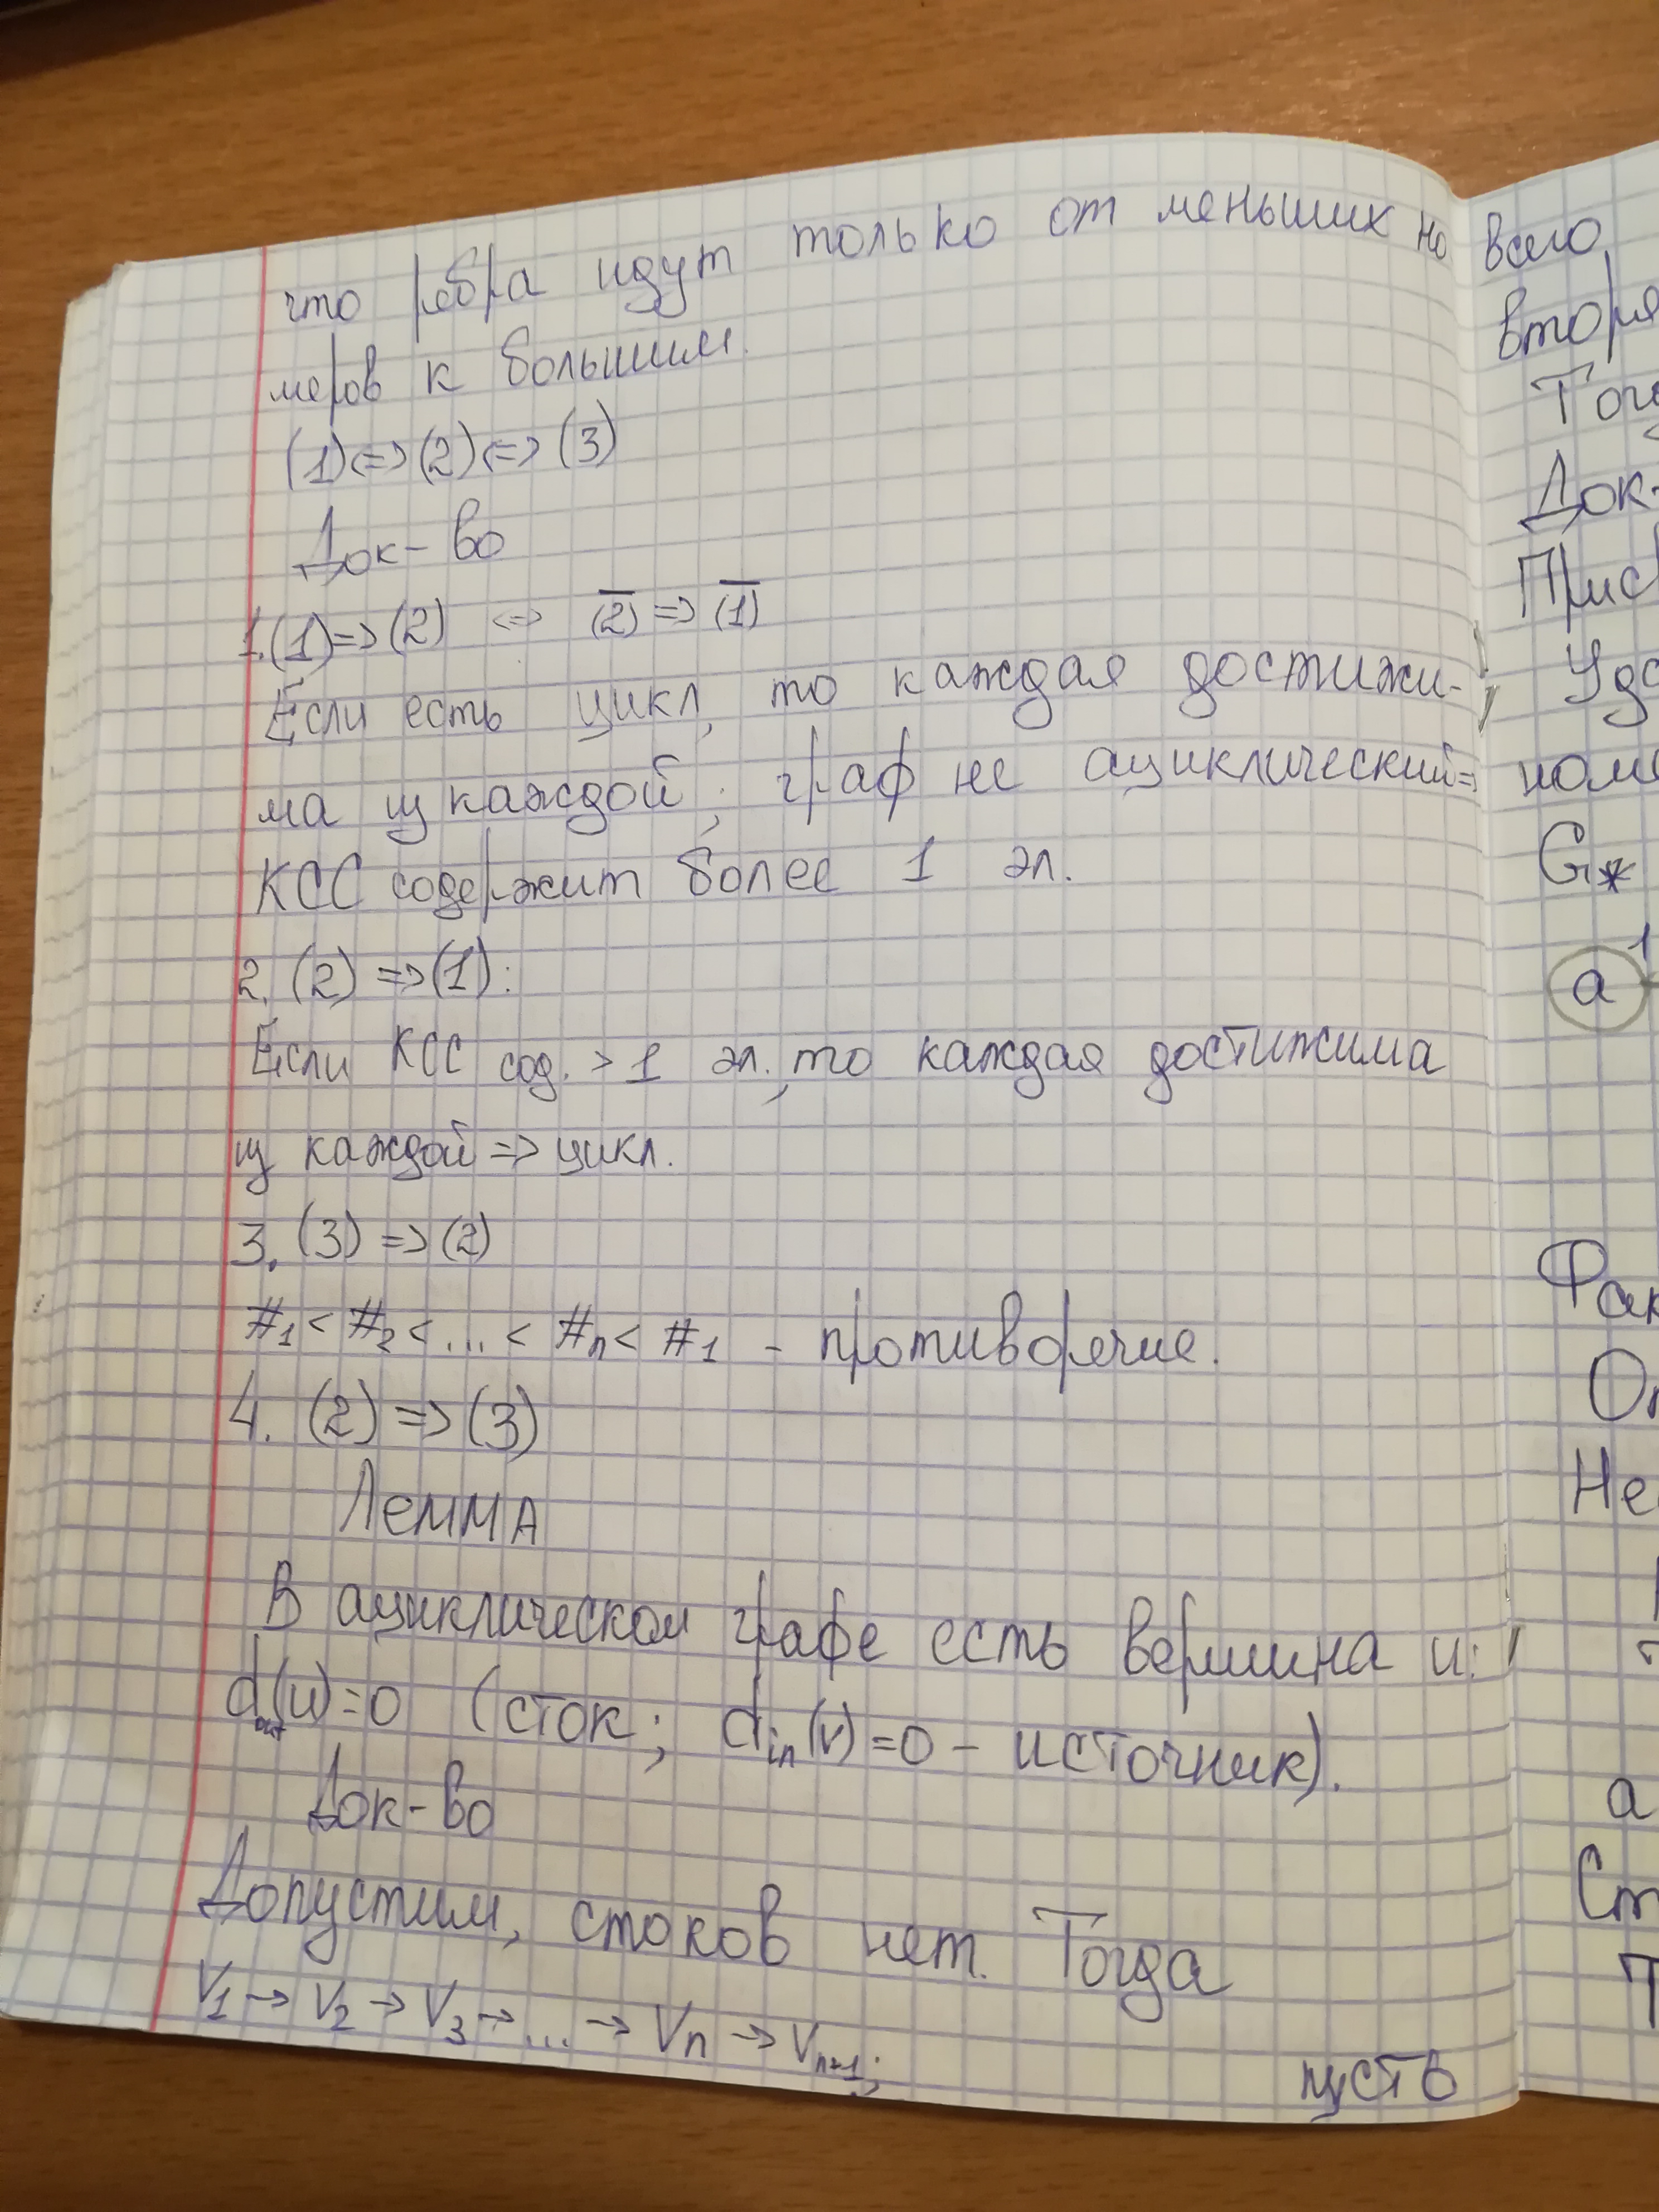 что рёбра идут только от меньших но
меров к большим.
(1)<=>(2)<=>(3)
Док-во
1.(1)=>(2) <=> (2̅)=>(1̅)
Если есть цикл, то каждая достижи-
ма из каждой; граф не ациклический=>
КСС содержит более 1 эл.
2. (2)=>(1):
Если КСС сод. >1 эл., то каждая достижима
из каждой => цикл.
3. (3)=>(2)
#₁ < #₂ < ... < #ₙ < #₁ - противоречие.
4. (2)=>(3)
Лемма
В ациклическом графе есть вершина u:
d_out(u)=0 (сток; d_in(v)=0 - источник).
Док-во
Допустим, стоков нет. Тогда
V₁→V₂→V₃→...→Vₙ→Vₙ₊₁;
пусть
всего
втор
Тог
Док-
Прис
Уда
номе
G*
a 1
Фак
Оп
Не
a
Ст
Т